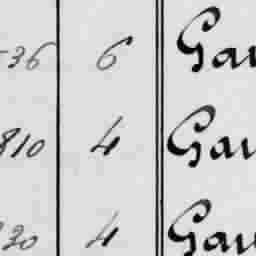 36 6 Gau
810 4 Gau
20 4 Gau